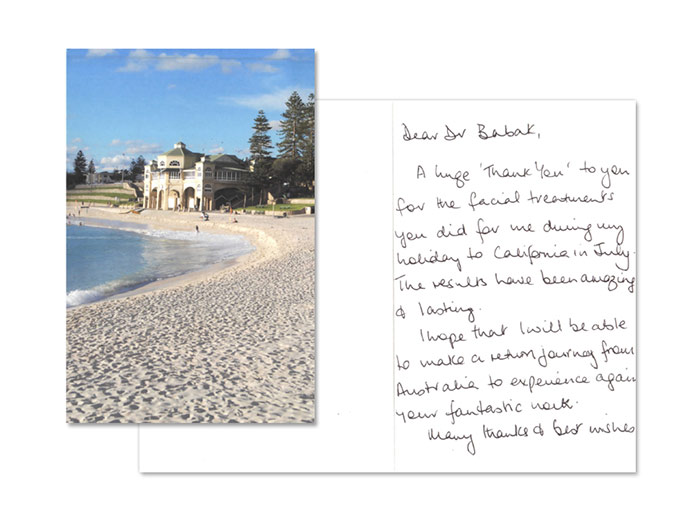 Dear Dr Babak,
A huge 'Thank You' to you
for the facial treatments
you did for me during my
holiday to California in July.
The results have been amazing
& lasting.
I hope that I will be able
to make a return journey from
Australia to experience again
your fantastic work.
Many thanks & best wishes